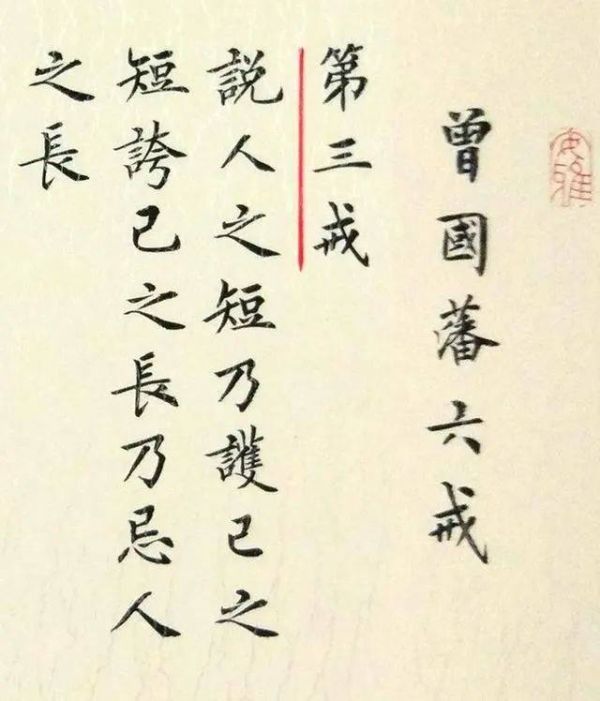 安雅
曾國藩六戒
第三戒
説人之短乃護己之
短誇己之長乃忌人
之長